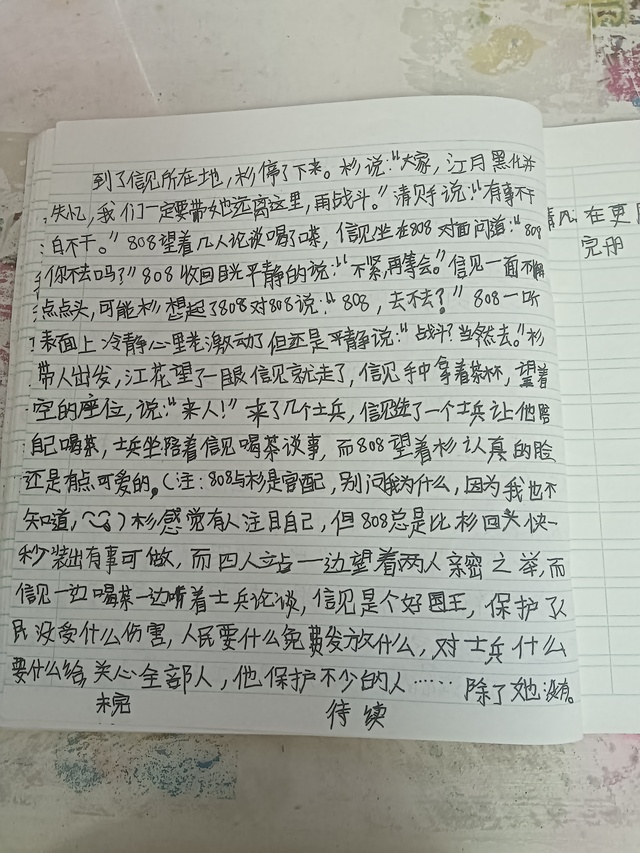 到了信见所在地，杉停了下来。杉说："大家，江月黑化并
失忆，我们一定要带她远离这里，再战斗。"清见手说："有事不干
白不干。"808望着几人论谈喝了口茶，信见坐在808对面问道："808
你不去吗？"808收回目光平静的说："不紧，再等会。"信见一面不解
点点头，可能杉想起了808对808说："808，去不去？"808一听
表面上冷静心里老激动了但还是平静说："战斗？当然去。"杉
带人出发，江花望了一眼信见就走了，信见手中拿着茶杯，望着
空的座位，说："来人！"来了几个士兵，信见选了一个士兵让他陪
自己喝茶，士兵坐陪着信见喝茶谈事，而808望着杉认真的脸
还是有点可爱的。（注：808与杉是官配，别问我为什么，因为我也不
知道，）杉感觉有人注目自己，但808总是比杉回头快一
秒装出有事可做，而四人站一边望着两人亲密之举，而
信见一边喝茶一边听着士兵论谈，信见是个好国王，保护了人
民没受什么伤害，人民要什么免费发放什么，对士兵什么
要什么给，关心全部人，他保护不少的人……除了她没有。
未完
待续
在更
完册